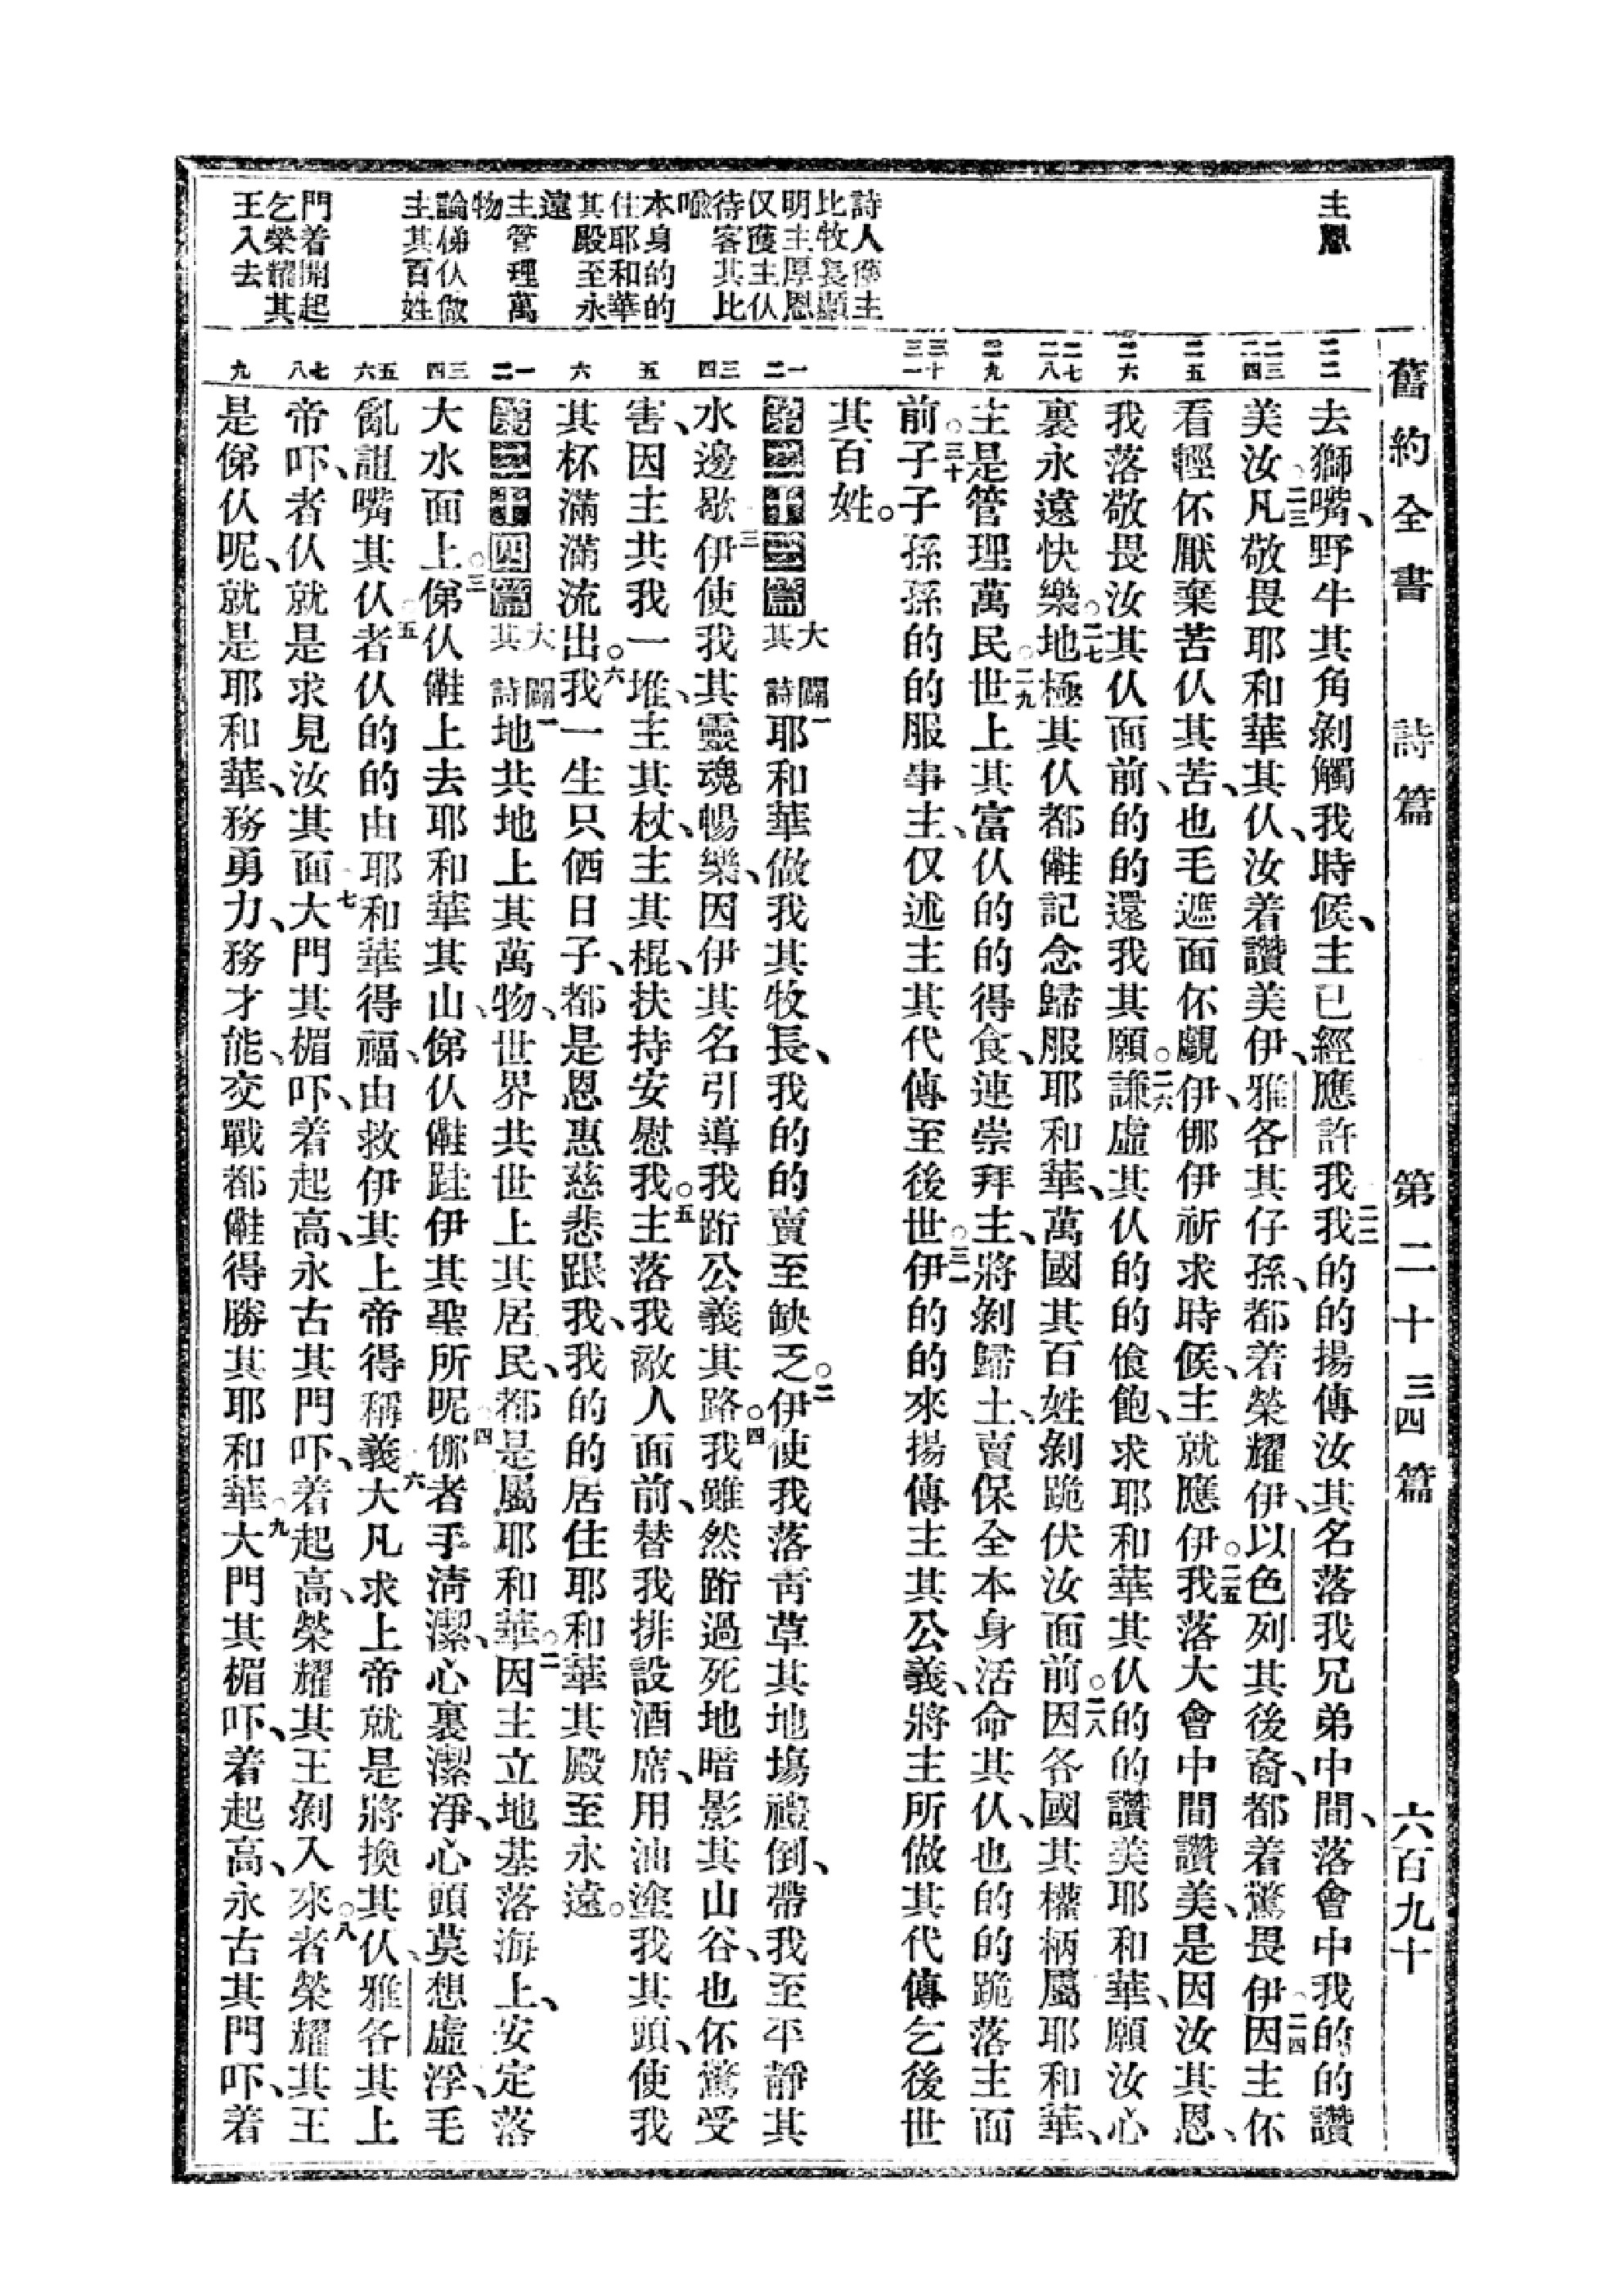 舊約全書　詩篇　第二十三四篇　六百九十
主恩
比牧長顯
明主厚恩
待客其比
喻
本身的的
住耶和華
其殿至永
遠
主管理萬
物
論俤仈做
主其百姓
門着開起
乞榮耀其
王入去
二二
二三 二四
二五
二六
二七 二八
二九
三十 三一
一 二
三 四
五
六
一 二
三 四
五 六
七 八
九
去獅嘴、野牛其角剝觸我時候、主已經應許我。二二我的的揚傳汝其名落我兄弟中間、落會中我的的讚
美汝。二三凡敬畏耶和華其仈、汝着讚美伊、雅各其仔孫、都着榮耀伊、以色列其後裔、都着驚畏伊。二四因主伓
看輕伓厭棄苦仈其苦、也毛遮面伓覷伊、㑚伊祈求時候、主就應伊。二五我落大會中間讚美、是因汝其恩、
我落敬畏汝其仈面前、的的還我其願。二六謙虛其仈的的飽、求耶和華其仈的的讚美耶和華、願汝心
裏永遠快樂。二七地極其仈都記念歸服耶和華、萬國其百姓剝跪伏汝面前。二八因各國其權柄屬耶和華、
主是管理萬民。二九世上其富仈的的得食、連崇拜主、將剝歸土、賣保全本身活命其仈、也的的跪落主面
前。三十子子孫孫的的服事主、仅述主其代傳至後世。三一伊的的來揚傳主其公義、將主所做其代傳乞後世
其百姓。
第二十三篇　大闢其詩　一耶和華做我其牧長、我的的賣至缺乏。二伊使我落青草其地塲倒、帶我至平靜其
水邊歇。三伊使我其靈魂暢樂、因伊其名引導我跲公義其路。四我雖然跲過死地暗影其山谷、也伓驚受
害、因主共我一堆、主其杖、主其棍、扶持安慰我。五主落我敵人面前、替我排設酒席、用油塗我其頭、使我
其杯滿滿流出。六我一生只仫日子、都是恩惠慈悲跟我、我的的居住耶和華其殿至永遠。
第二十四篇　大闢其詩　一地共地上其萬物、世界共世上其居民、都是屬耶和華。二因主立地基落海上、安定落
大水面上。三俤仈上去耶和華其山、俤仈跬伊其聖所呢。四㑚者手清潔、心裏潔淨、心頭莫想虛浮、毛
亂詛嘴其仈。五者仈的的由耶和華得福、由救伊其上帝得稱義。六大凡求上帝就是將換其仈、雅各其上
帝吓、者仈就是求見汝其面。七大門其楣吓、着起高、永古其門吓、着起高、榮耀其王剝入來。八者榮耀其王
是俤仈呢、就是耶和華、務勇力、務才能、交戰都得勝其耶和華。九大門其楣吓、着起高、永古其門吓、着